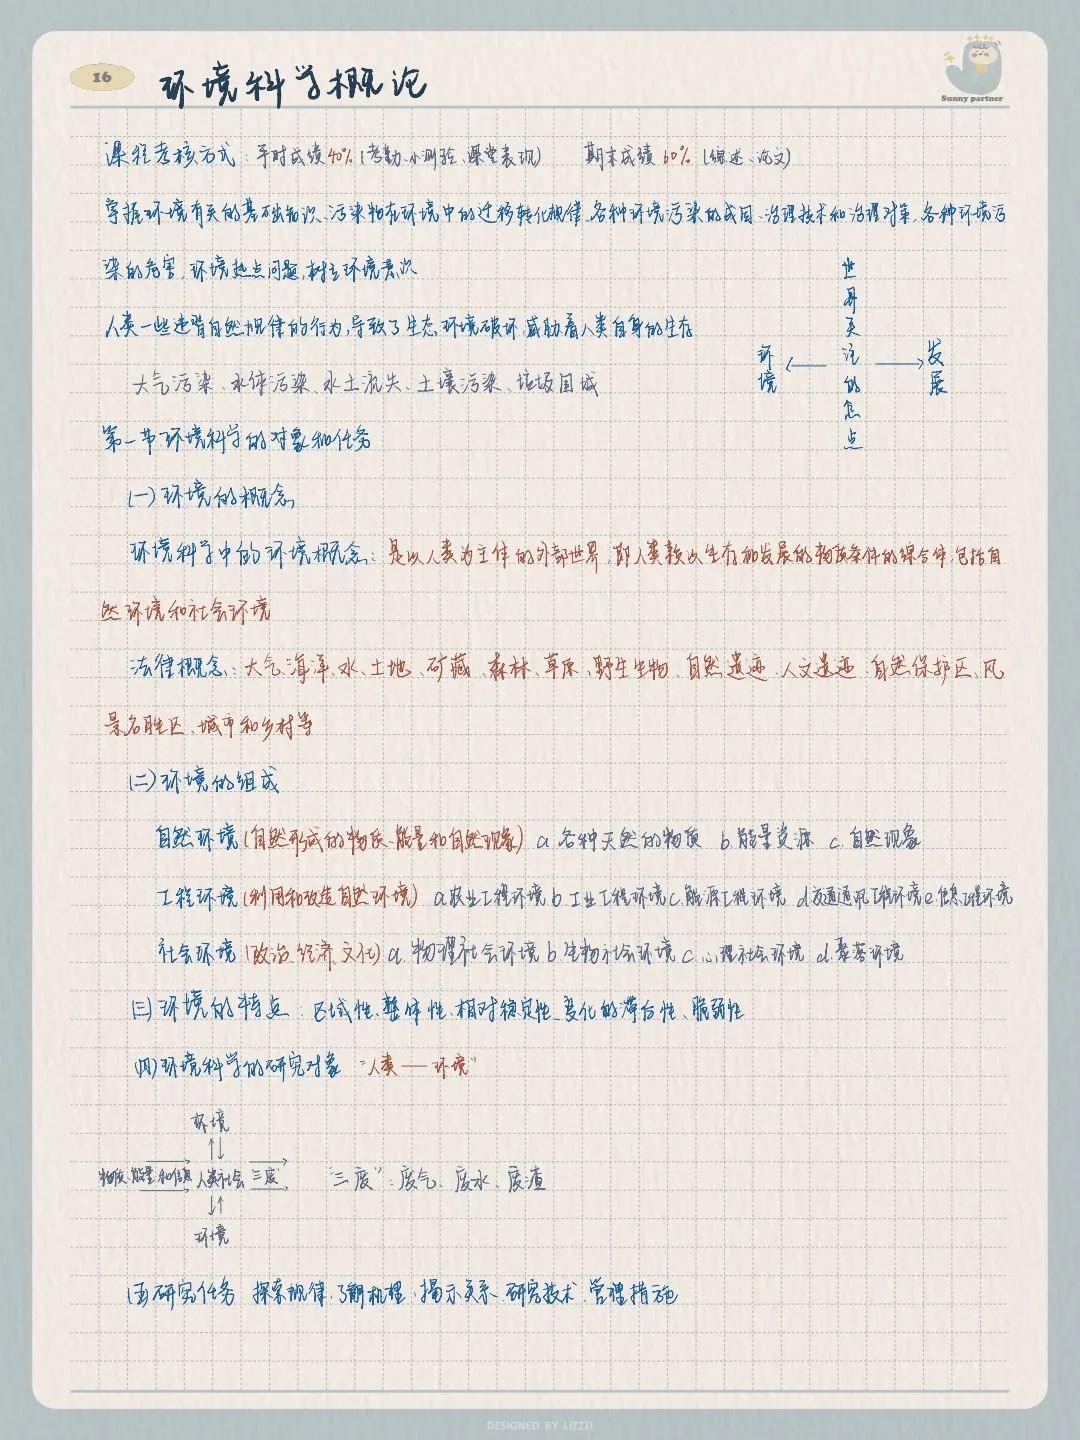 16
环境科学概论
Sunny partner
课程考核方式：平时成绩40%（考勤、小测验、课堂表现） 期末成绩60%（综述、论文）
掌握环境有关的基础知识、污染物在环境中的迁移转化规律、各种环境污染的成因、治理技术和治理对策，各种环境污
染的危害，环境热点问题，树立环境意识
人类一些违背自然规律的行为，导致了生态环境破坏，威胁着人类自身的生存
大气污染、水体污染、水土流失、土壤污染、垃圾围城
环境 ← 世界关注的焦点 → 发展
第一节 环境科学的对象和任务
（一）环境的概念
环境科学中的环境概念：是以人类为主体的外部世界，即人类赖以生存和发展的物质条件的综合体，包括自
然环境和社会环境
法律概念：大气、海洋、水、土地、矿藏、森林、草原、野生生物、自然遗迹、人文遗迹、自然保护区、风
景名胜区、城市和乡村等
（二）环境的组成
自然环境（自然形成的物质、能量和自然现象） a.各种天然的物质 b.能量资源 c.自然现象
工程环境（利用和改造自然环境） a.农业工程环境 b.工业工程环境 c.能源工程环境 d.交通通讯工程环境 e.信息工程环境
社会环境（政治、经济、文化） a.物理社会环境 b.生物社会环境 c.心理社会环境 d.聚落环境
（三）环境的特点：区域性、整体性、相对稳定性、变化的滞后性、脆弱性
（四）环境科学的研究对象 “人类——环境”
环境
↑↓
物质、能量和信息 → 人类社会 三废 →
“三废”：废气、废水、废渣
↓↑
环境
（五）研究任务 探索规律、了解机理、揭示关系、研究技术、管理措施
DESIGNED BY LIZZZI